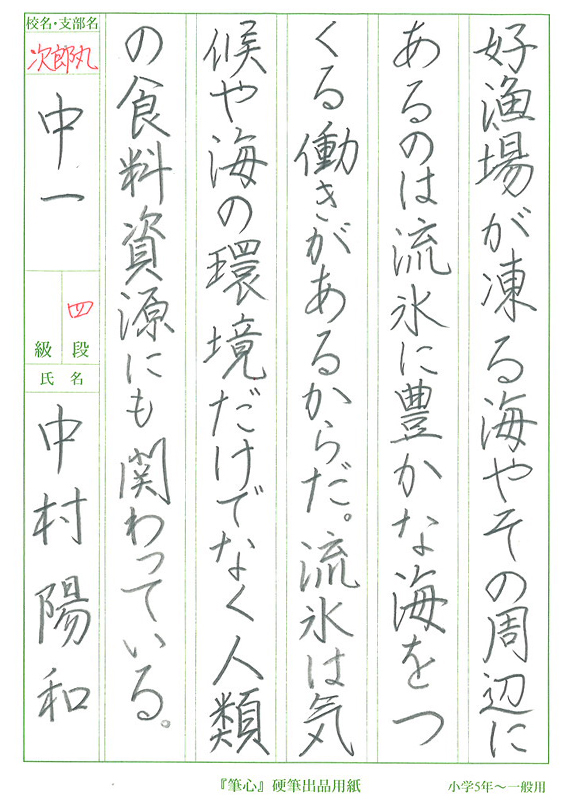 好漁場が凍る海やその周辺に
あるのは流氷に豊かな海をつ
くる働きがあるからだ。流氷は気
候や海の環境だけでなく人類
の食料資源にも関わっている。
校名・支部名
次郎丸
中一
四
段
級
氏名
中村陽和
『筆心』硬筆出品用紙
小学5年〜一般用